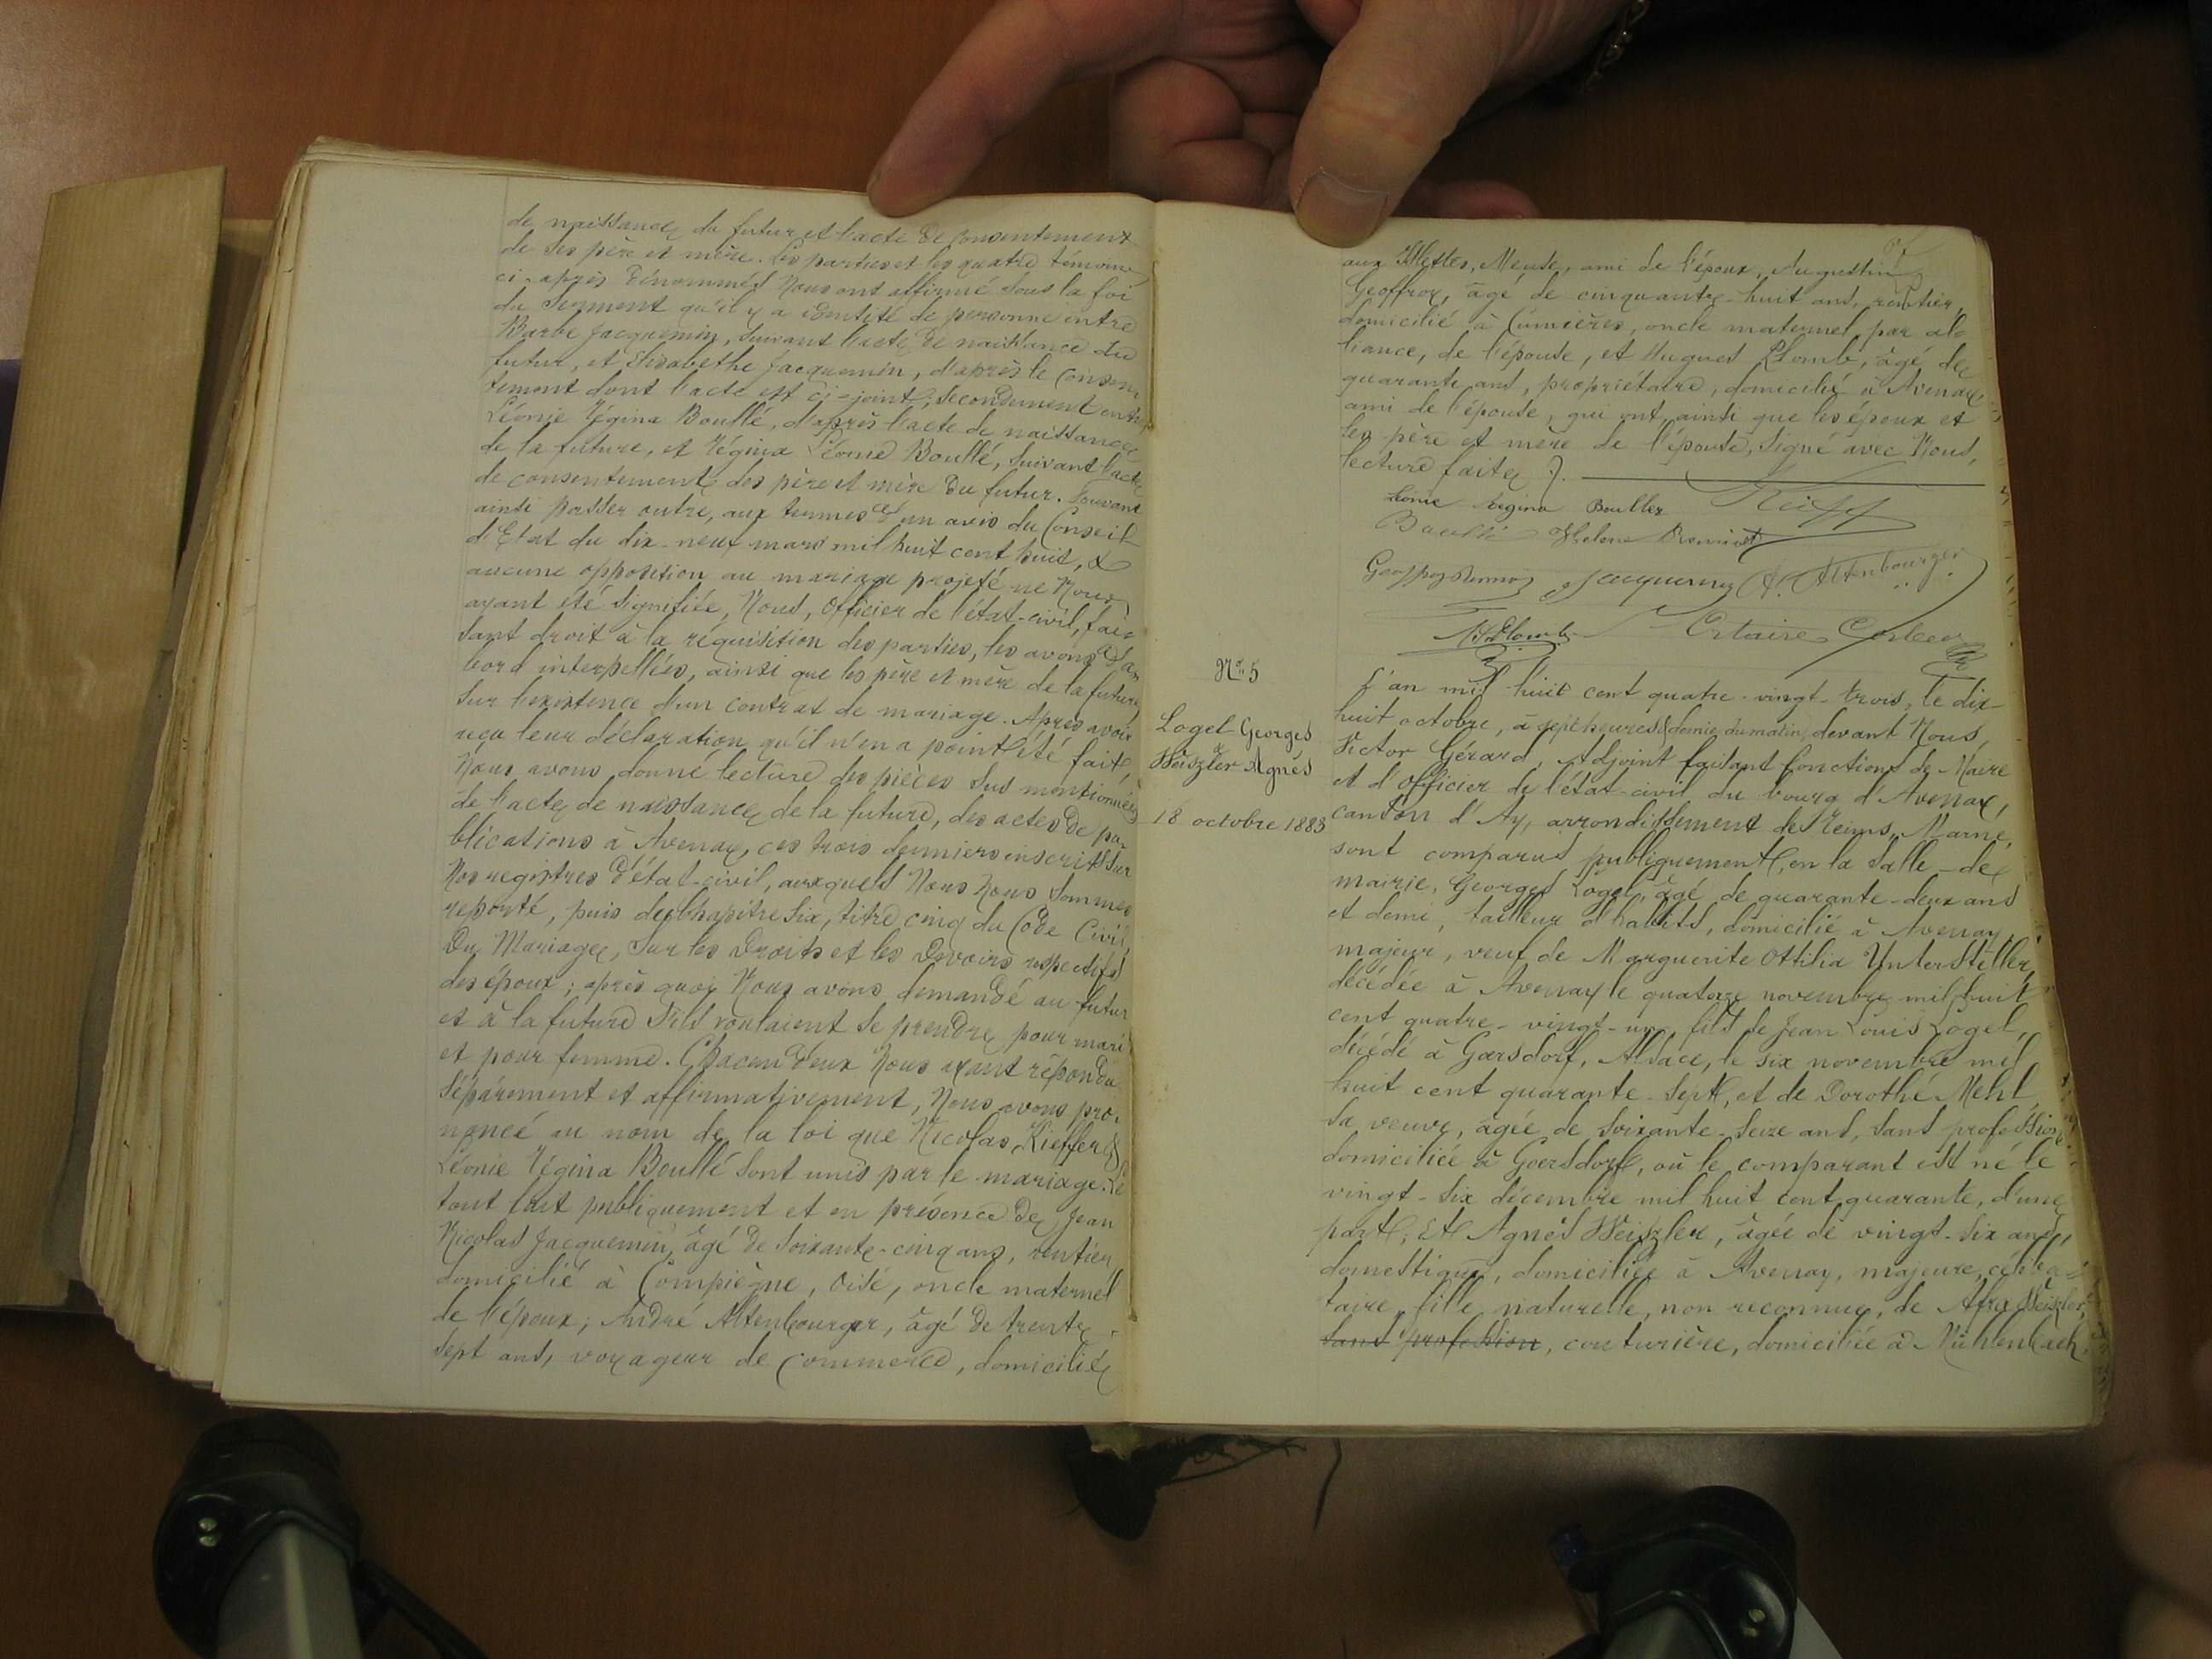 de naissance du futur et l'acte de consentement
de ses père et mère. Les parties et les quatre témoins
ci-après dénommés Nous ont affirmé sous la foi
du serment qu'il y a identité de personne entre
Barbe Jacquemin, suivant l'acte de naissance du
futur, et Elisabethe Jacquemin, d'après le consen
tement dont l'acte est ci-joint; secondement entre
Léonie Régina Boullé, d'après l'acte de naissance
de la future, et Régina Léonie Boullé, suivant l'acte
de consentement des père et mère du futur. Pouvant
ainsi passer outre, aux termes d'un avis du Conseil
d'Etat du dix-neuf mars mil huit cent huit, &
aucune opposition au mariage projeté ne Nous
ayant été signifiée, Nous, officier de l'état-civil, fai=
sant droit à la réquisition des parties, les avons d'a=
bord interpellées, ainsi que les père et mère de la future,
sur l'existence d'un contrat de mariage. Après avoir
reçu leur déclaration qu'il n'en a point été fait,
Nous avons donné lecture des pièces sus mentionnées
de l'acte de naissance de la future, des actes de pu=
blications à Avenay, ces trois derniers inscrits sur
Nos registres d'état-civil, auxquels Nous Nous sommes
reporté, puis du chapitre six, titre cinq du Code Civil,
Du Mariage, sur les Droits et les Devoirs respectifs
des époux; après quoi Nous avons demandé au futur
et à la future s'ils voulaient se prendre pour mari
et pour femme. Chacun d'eux Nous ayant répondu
séparément et affirmativement, Nous avons pro=
noncé au nom de la loi que Nicolas Kieffer &
Léonie Régina Boullé sont unis par le mariage. Le
tout fait publiquement et en présence de Jean
Nicolas Jacquemin, âgé de soixante-cinq ans, rentier,
domicilié à Compiègne, Oise, oncle maternel
de l'époux; André Altenbourger, âgé de trente-
sept ans, voyageur de commerce, domicilié
aux Islettes, Meuse, ami de l'époux, Augustin
Geoffroy, âgé de cinquante-huit ans, rentier,
domicilié à Cumières, oncle maternel, par al=
liance, de l'épouse, et Hugues Plomb, âgé de
quarante ans, propriétaire, domicilié à Avenay,
ami de l'épouse, qui ont, ainsi que les époux et
les père et mère de l'épouse, signé avec Nous,
lecture faite.
Léonie Régina Boullez
Boullé
Geoffroy Jacquemin A. Altenbourger
H. Plomb
N° 5
Logel Georges
&
Weiszler Agnès
18 octobre 1883
L'an mil huit cent quatre-vingt-trois, le dix-
huit octobre, à sept heures & demie du matin, devant Nous,
Victor Gérard, Adjoint faisant fonctions de Maire
et d'officier de l'état-civil du bourg d'Avenay,
canton d'Ay, arrondissement de Reims, Marne,
sont comparus publiquement, en la salle de
mairie, Georges Logel, âgé de quarante-deux ans
et demi, tailleur d'habits, domicilié à Avenay,
majeur, veuf de Marguerite Ottilia Untersteller,
décédée à Avenay le quatorze novembre mil huit
cent quatre-vingt-un, fils de Jean Louis Logel,
décédé à Gœrsdorf, Alsace, le six novembre mil
huit cent quarante-sept, et de Dorothé Mehl
sa veuve, âgée de soixante-seize ans, sans profession,
domiciliée à Goersdorf, où le comparant est né le
vingt-six décembre mil huit cent quarante, d'une
part; Et Agnès Weiszler, âgée de vingt-six ans,
domestique, domiciliée à Avenay, majeure, céliba=
taire, fille naturelle, non reconnue, de Afra Weiszler,
sans profession, couturière, domiciliée à Mühlenbach,